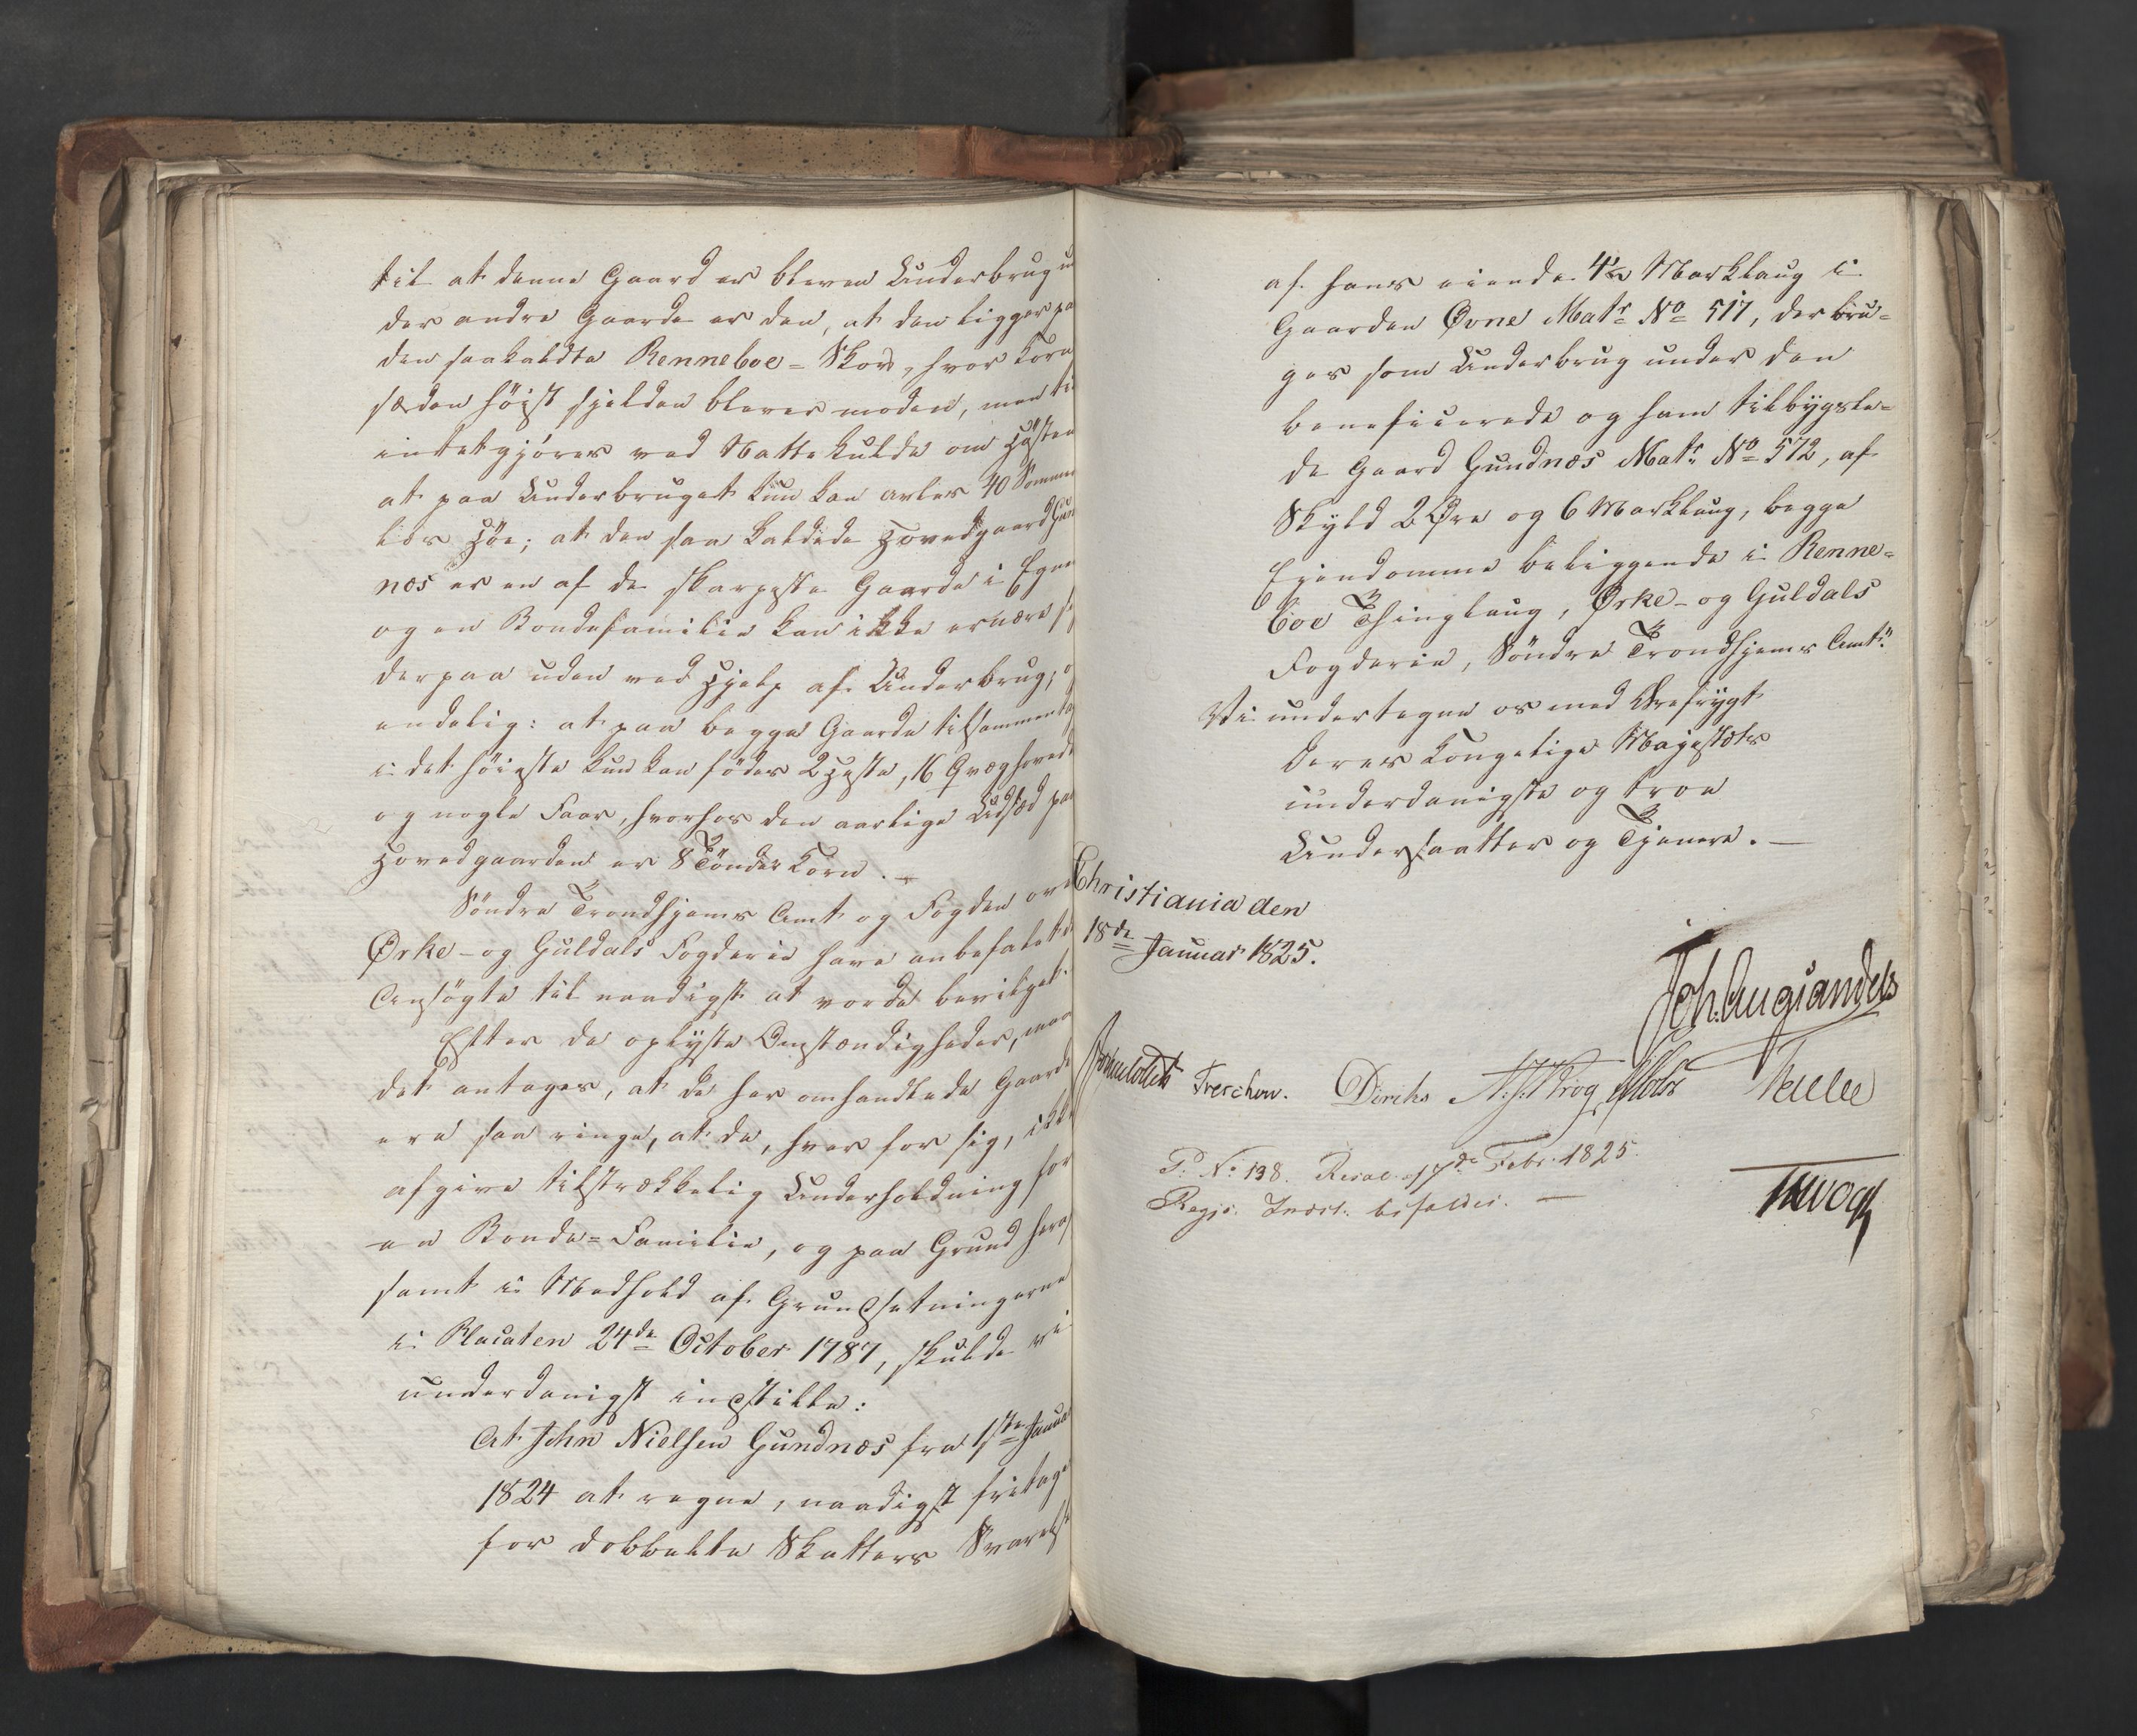 til at denne Gaard er bleven Underbrug un
der andre Gaarde er den, at den ligger pa
den saakaldte Renneboe-Skov, hvor Korn
sæden höist sjelden bliver moden, men til
intetgjöres ved Nattekulde om Hösten
at paa Underbruget kun kan avles 40 Sommer
læs Höe; at den saa kaldede Hovedgaard Gund
næs er en af de skarpeste Gaarde i Egnen
og en Bondefamilie kan ikke ernære si
derpaa uden ved Hjelp af Underbrug; og
endelig: at paa begge Gaarde tilsammentag
i det höieste kun kan födes 2 Heste, 16 Qvæghoved
og nogle Faar, hvorhos den aarlige Udsæd paa
Hovedgaarden er 8 Tönder Korn. –
Söndre Trondhjems Amt og Fogden over
Örke- og Guldals Fogderie have anbefalet de
Ansögte til naadigst at vorde bevilget.
Efter de oplyste Omstændigheder, maa
det antages, at de her omhandlede Gaarde
ere saa ringe, at de, hver for sig, ikke
afgive tilstrækkelig Underholdning for
en Bonde-Familie, og paa Grund heraf
samt i Medhold af Grundsetningerne
i Placaten 24de October 1787, skulde vi
underdanigst indstille:
At John Nielsen Gundnæs fra 1ste Januar
1824 at regne, naadigst fritages
for dobbelte Skatters Svarelse
af hans eiende 4½ Marklaug i
Gaarden Övne Matr No 517, der bru-
ges som Underbrug under den
beneficerede og ham tilbygsle-
de Gaard Gundnæs Matr No 572, af
Skyld 2 Öre og 6 Marklaug, begge
Eiendomme beliggende i Renne-
boe Thinglaug, Örke- og Guldals
Fogderie, Söndre Trondhjems Amt."
Vi undertegne os med Ærefrygt
Deres Kongelige Majestæts
underdanigste og troe
Undersaatter og Tjenere. –
Christiania den
18de Januar 1825.
Joh. Aug. Sandels
Treschow. Diriks
P. No 138. Resol. 17de Febr. 1825.
Regjs. Indst. bifaldes. –